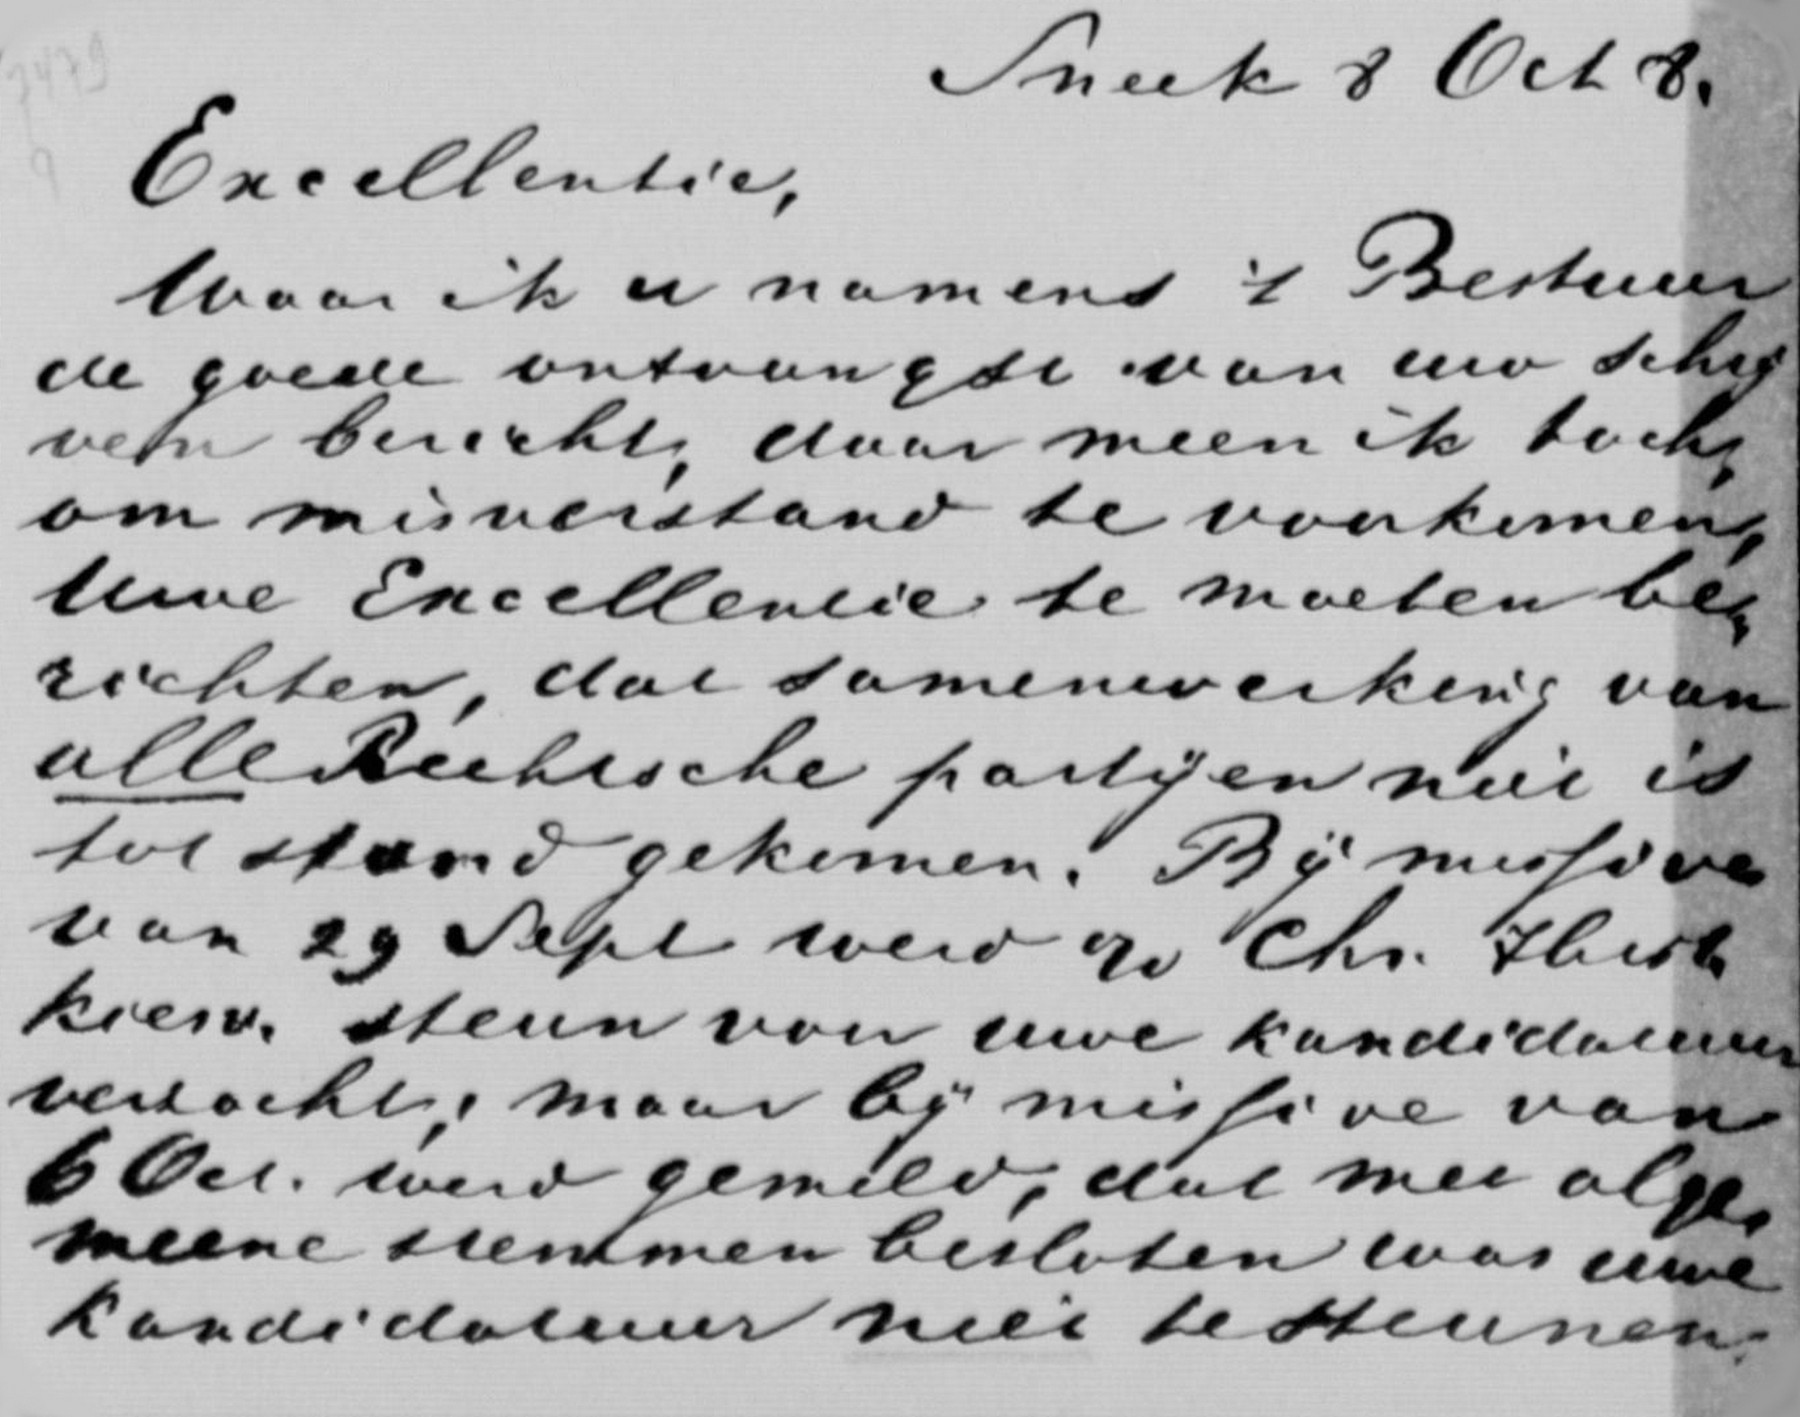 Sneek 8 Oct 8.
Excellentie,
Waar ik u namens 't Bestuur
de goede ontvangst van uw schrij
ven bericht, daar meen ik toch,
om misverstand te voorkomen,
Uwe Excellentie te moeten be,
richten, dat samenwerking van
alle Rechtsche partijen niet is
tot stand gekomen. Bij missive
van 29 Sept werd Chr. Hist.
kiesv. steun voor uwe kandidatuur
verzocht, maar bij missive van
6 Oct. werd gemeld, dat met alge,
meene stemmen besloten was uwe
kandidatuur niet te steunen.